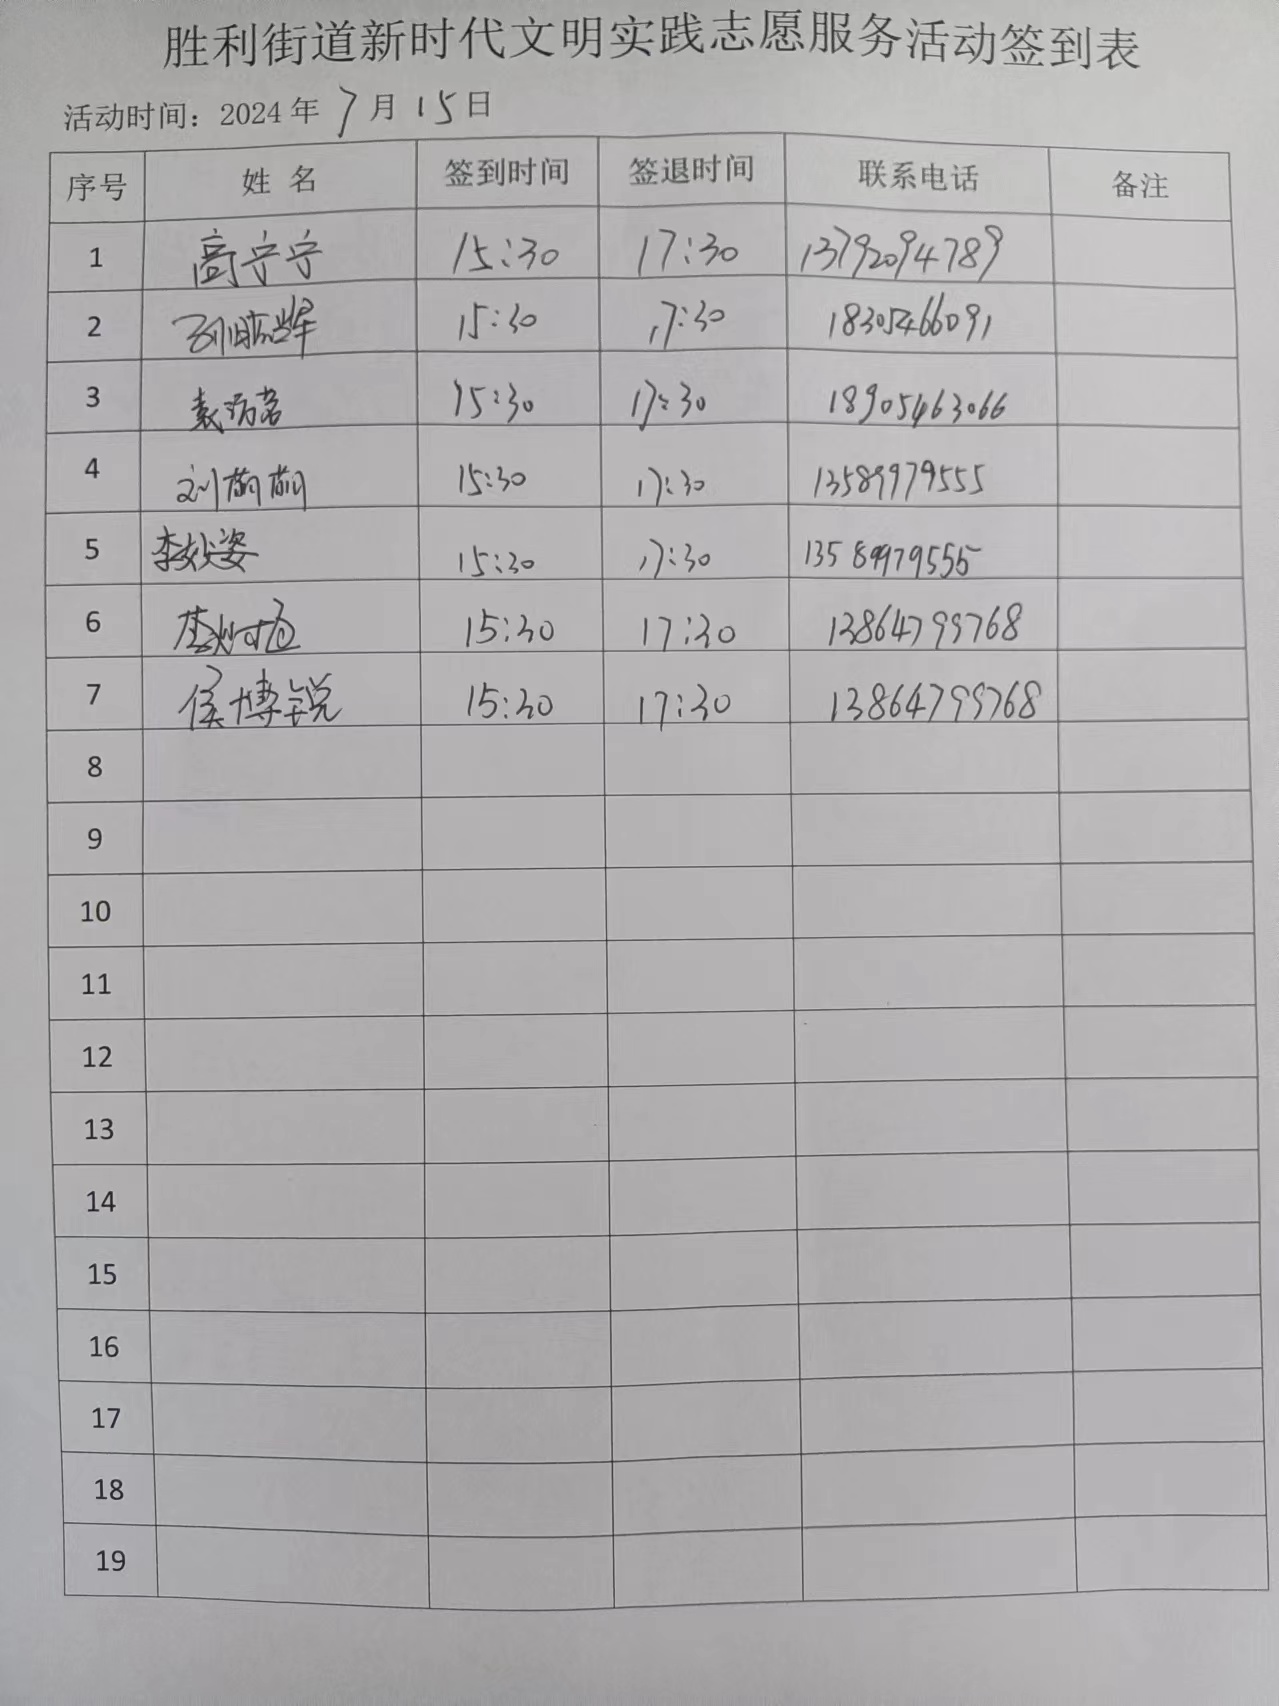 胜利街道新时代文明实践志愿服务活动签到表
活动时间：2024年 7月 15日
序号 姓 名 签到时间 签退时间 联系电话 备注
1 高宁宁 15:30 17:30 13792094789
2 15:30 17:30 18305466091
3 15:30 17:30 18905463066
4 刘萌萌 15:30 17:30 13589979555
5 李姣姿 15:30 17:30 13589979555
6 15:30 17:30 13864799768
7 侯博锐 15:30 17:30 13864799768
8
9
10
11
12
13
14
15
16
17
18
19